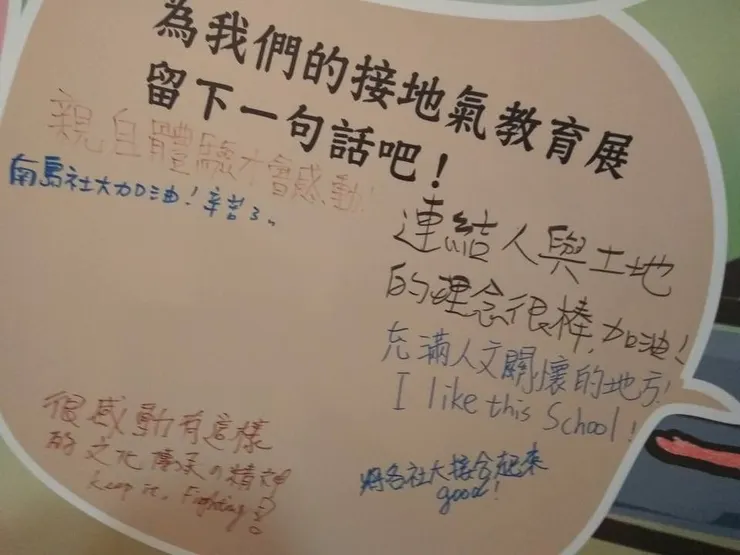 為我們的接地氣教育展
留下一句話吧！
親自體驗才會感動！
南島社大加油！辛苦了。
連結人與土地
的理念很棒,加油！
充滿人文關懷的地方！
I like this School !
很感動有這樣
的文化傳承の精神
keep it, Fighting !
將各社大接合起來
good!